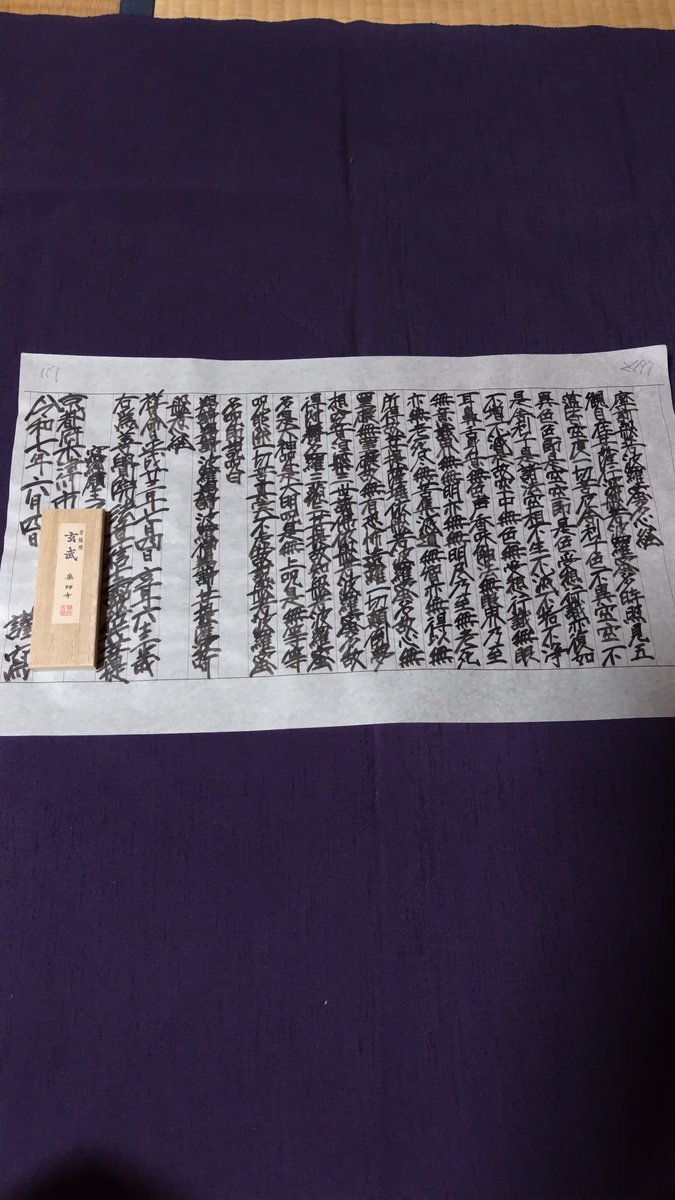 117
摩訶般若波羅蜜多心経
観自在菩薩行深般若波羅蜜多時照見五
蘊皆空度一切苦厄舎利子色不異空空不
異色色即是空空即是色受想行識亦復如
是舎利子是諸法空相不生不滅不垢不浄
不増不減是故空中無色無受想行識無眼
耳鼻舌身意無色声香味触法無眼界乃至
無意識界無無明亦無無明尽乃至無老死
亦無老死尽無苦集滅道無智亦無得以無
所得故菩提薩埵依般若波羅蜜多故心無
罣礙無罣礙故無有恐怖遠離一切顛倒夢
想究竟涅槃三世諸仏依般若波羅蜜多故
得阿耨多羅三藐三菩提故知般若波羅蜜
多是大神呪是大明呪是無上呪是無等等
呪能除一切苦真実不虚故説般若波羅蜜
多呪即説呪曰
羯諦羯諦波羅羯諦波羅僧羯諦菩提薩婆訶
般若心経
祥月命日
右為菩提
京都府木津川市
令和七年六月四日 謹写
玄武
薬師寺